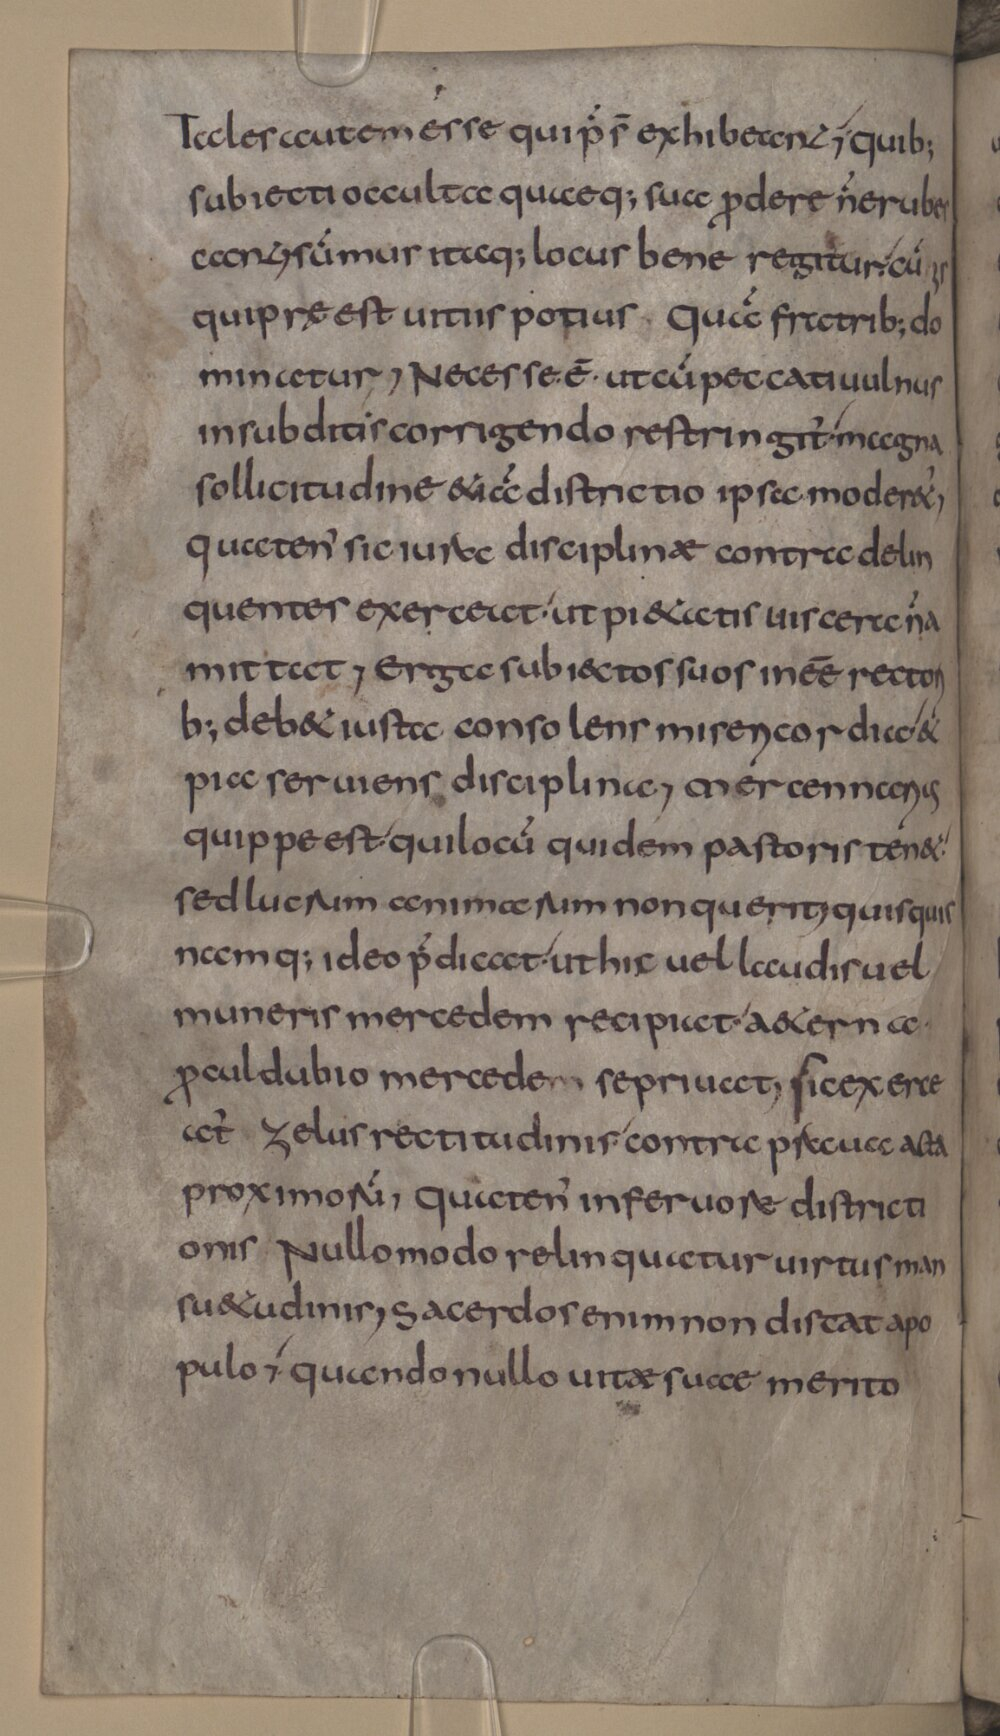 Tales autem esse qui p̄s̄t exhibeant᷑; quib;
subiecti occulta quaeq; sua ꝓdere n̄ erubes
cant᷑; sūmus itaq; locus bene regitur·cū is
qui preest uitiis potius Quā fratrib; do
minaetur; Necesse·ē· ut cū peccati uulnus
in subditis corrigendo restringit̄· magna
sollicitudine &iā districtio ipsa moder&ꝰ;
quaten̄ sic iura disciplinæ contra delin
quentes exerceat· ut pi&atis uiscera n̄ a
mittat; Erga subi&os suos inēē rectori
b; deb& iusta consolens misericordia· &
pia seruiens disciplina; Mercennarius
quippe est· qui locū quidem pastoris ten&·
sed lucrum animarum non querit; quisquis
namq; ideo p̄dicat· ut hic uel laudis uel
muneris mercedem recipiat· a&erna
ꝓcul dubio mercedem se priuat; sic exerce
at̄ Zelus rectitudinis· contra praua acta
proximorū; Quaten̄ in feruore districti
onis Nullo modo relinquatur uirtus man
su&udinis; Sacerdos enim non distat apo
pulo; quando nullo uitæ suae merito